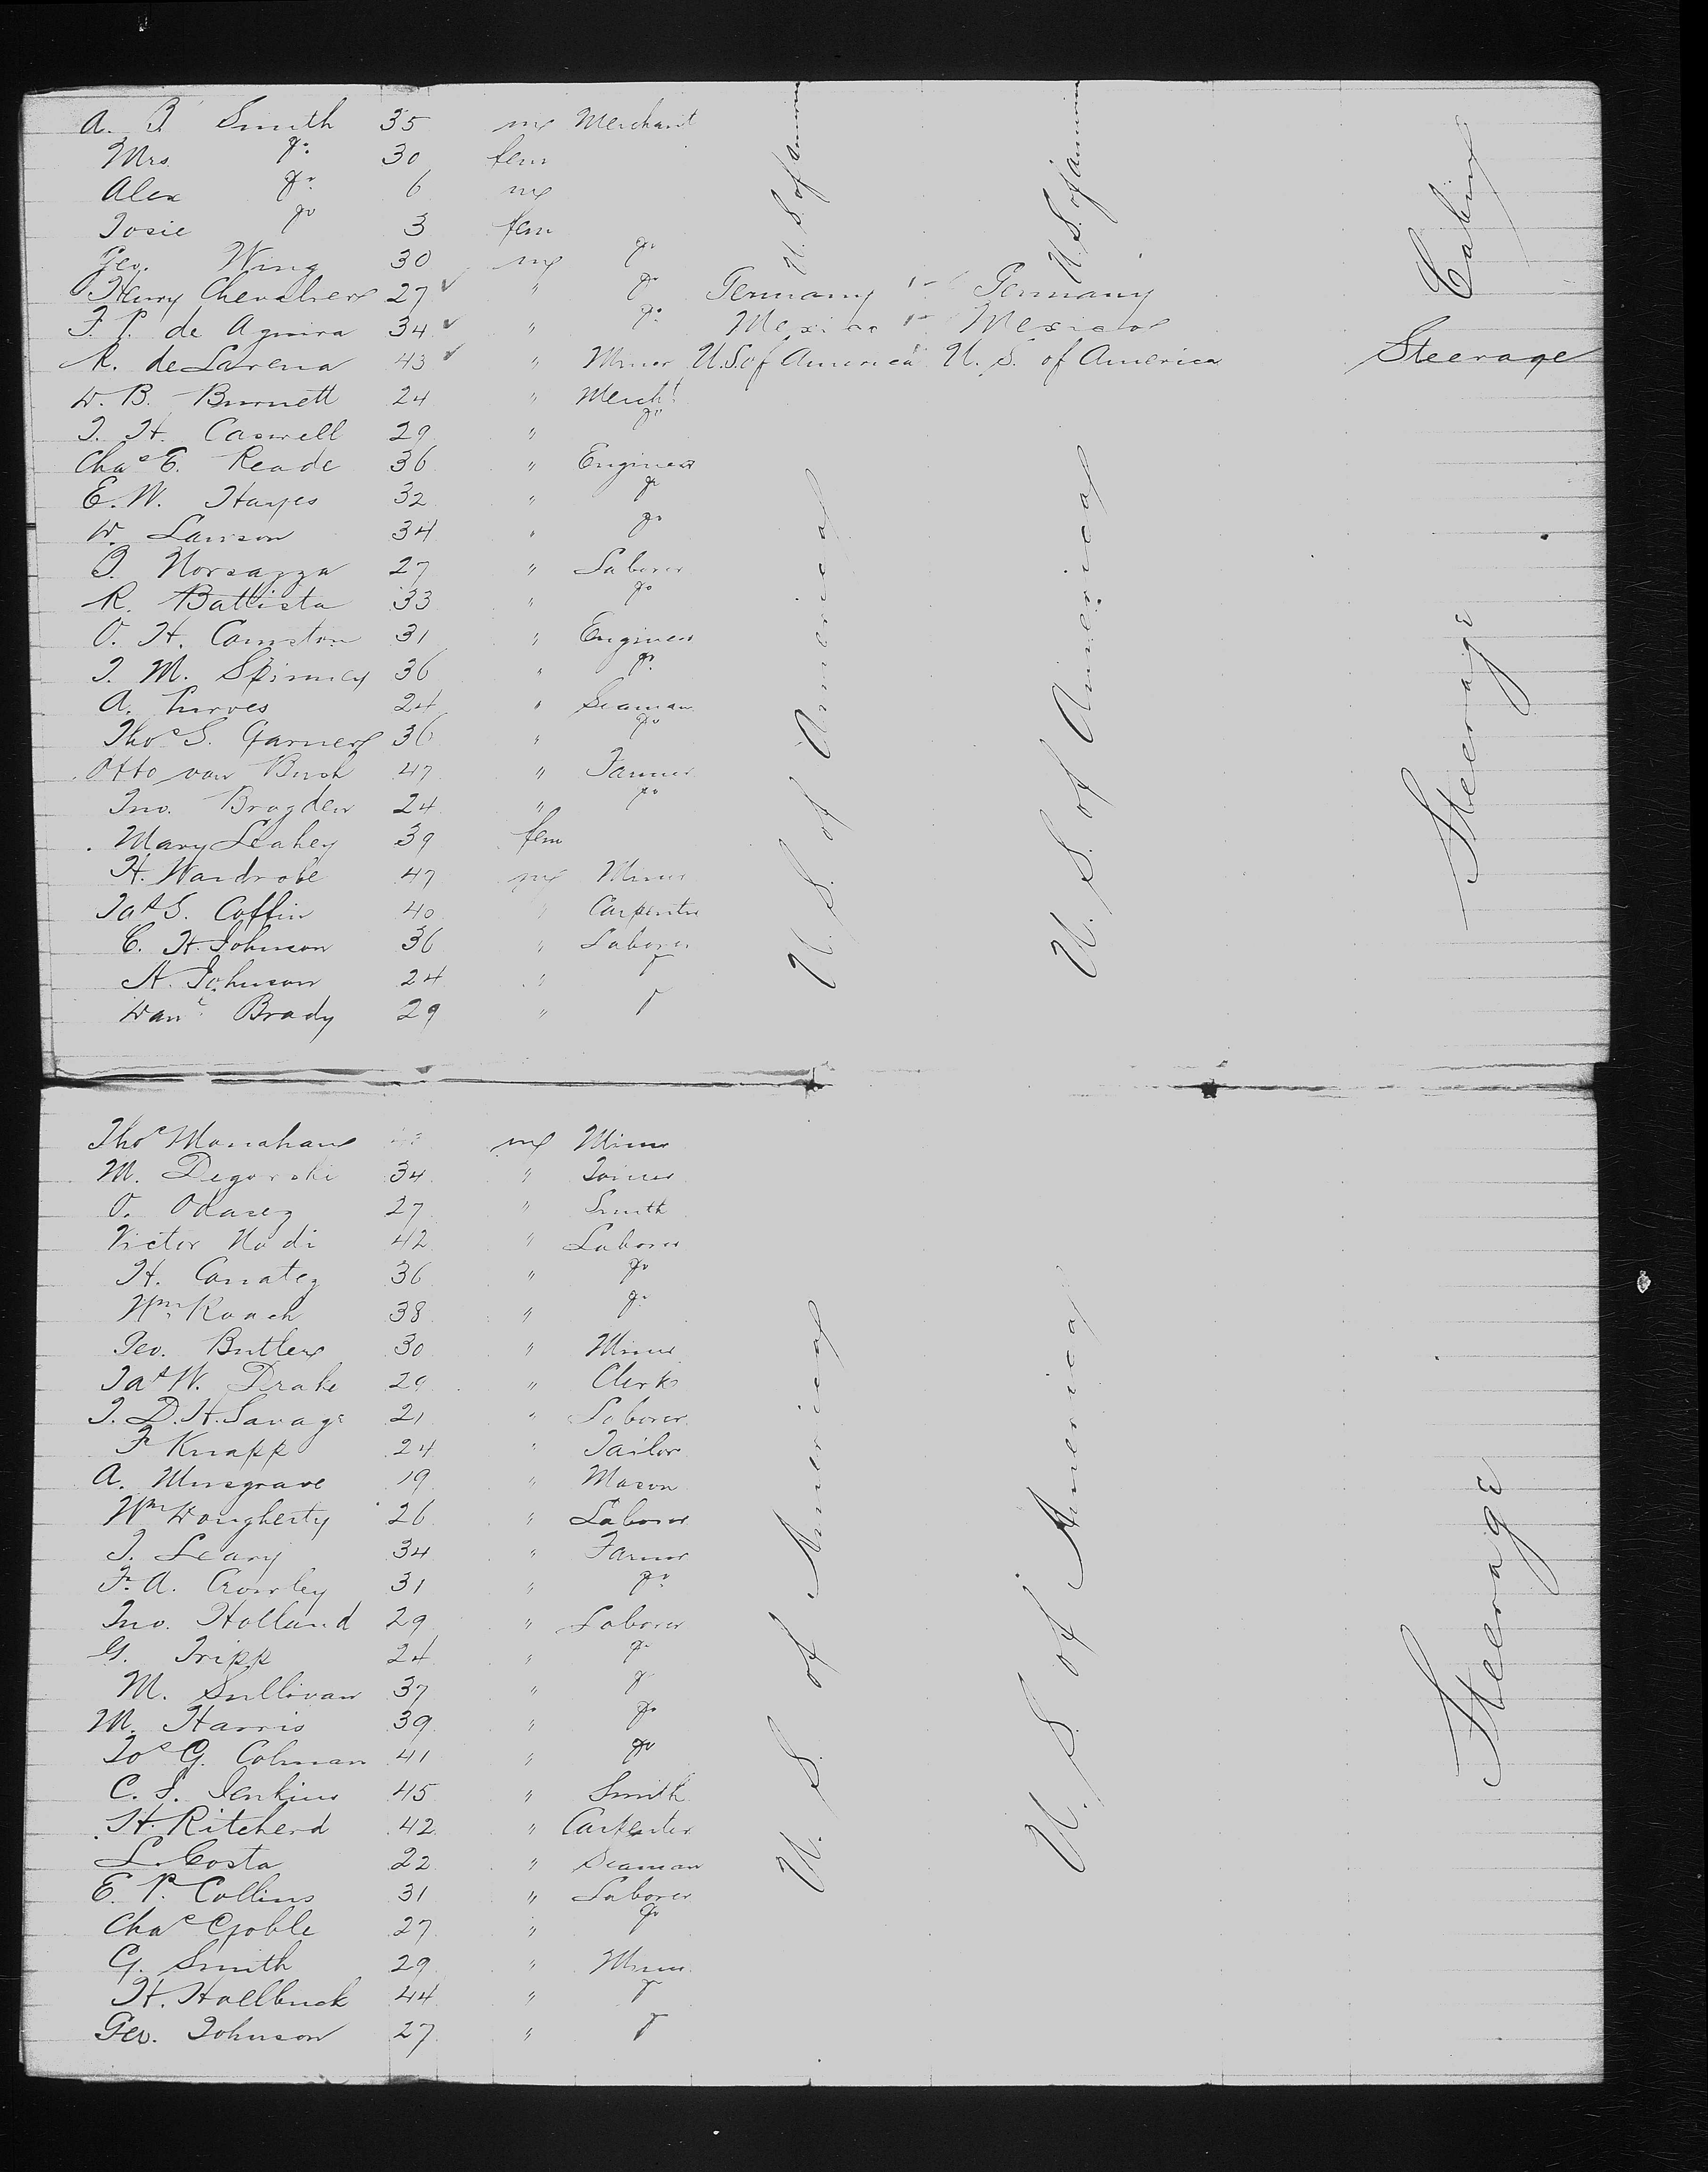 A. J. Smith 35 m Merchant
Mrs do 30 fem
Alex do 6 m
Josie do 3 fem
Geo. Wing 30 m do
Henry Chevalier 27 " do Germany Germany
F. P. de 34 " do Mexico Mexico
R. de Larena 43 " Miner U.S. of America U. S. of America Steerage
U. S. of America
U. S. of America
Cabin
W. B. Burnett 24 " Mercht
J. H. Caswell 29 " do
Chas E. Reade 36 " Engineer
E. W. Hayes 32 " do
W. Lawson 34 " do
27 " Laborer
R. Battista 33 " do
O. H. 31 " Engineer
J. M. Spinney 36 " do
A. Purves 24 " Seaman
Thos S. Garner 36 " do
Otto van Bush 47 " Farmer
Jno. Brogden 24 " do
Mary Leahey 39 fem
H. Wardrobe 47 m Miner
Jas S. Coffin 40 " Carpenter
C. H. Johnson 36 " Laborer
A. Johnson 24 " "
Danl Brady 29 "
U. S. of America
U. S. of America
Steerage
Thos Monahan m Miner
M. Degorski 34 " Joiner
O. 27 " Smith
Victor Nodi 42 " Laborer
H. 36 " do
Wm Roach 38 " do
Geo. Butler 30 " Miner
Jas W. Drake 29 " Clerk
J. D. H. Savage 21 " Laborer
F Knapp 24 " Tailor
A. Musgrave 19 " Mason
Wm Dougherty 26 " Laborer
J. Leary 34 " Farmer
F. A. Crowley 31 " do
Jno. Holland 29 " Laborer
G. Tripp 24 " do
M. Sullivan 37 " do
M. Harris 39 " do
Jos G. Colman 41 " do
C. J. Jenkins 45 " Smith
H. Ritcherd 42 " Carpenter
L. Costa 22 " Seaman
E. P. Collins 31 " Laborer
Chas Goble 27 " do
G. Smith 29 " Miner
H. Hallbuck 44 "
Geo. Johnson 27 "
U. S. of America
U. S. of America
Steerage